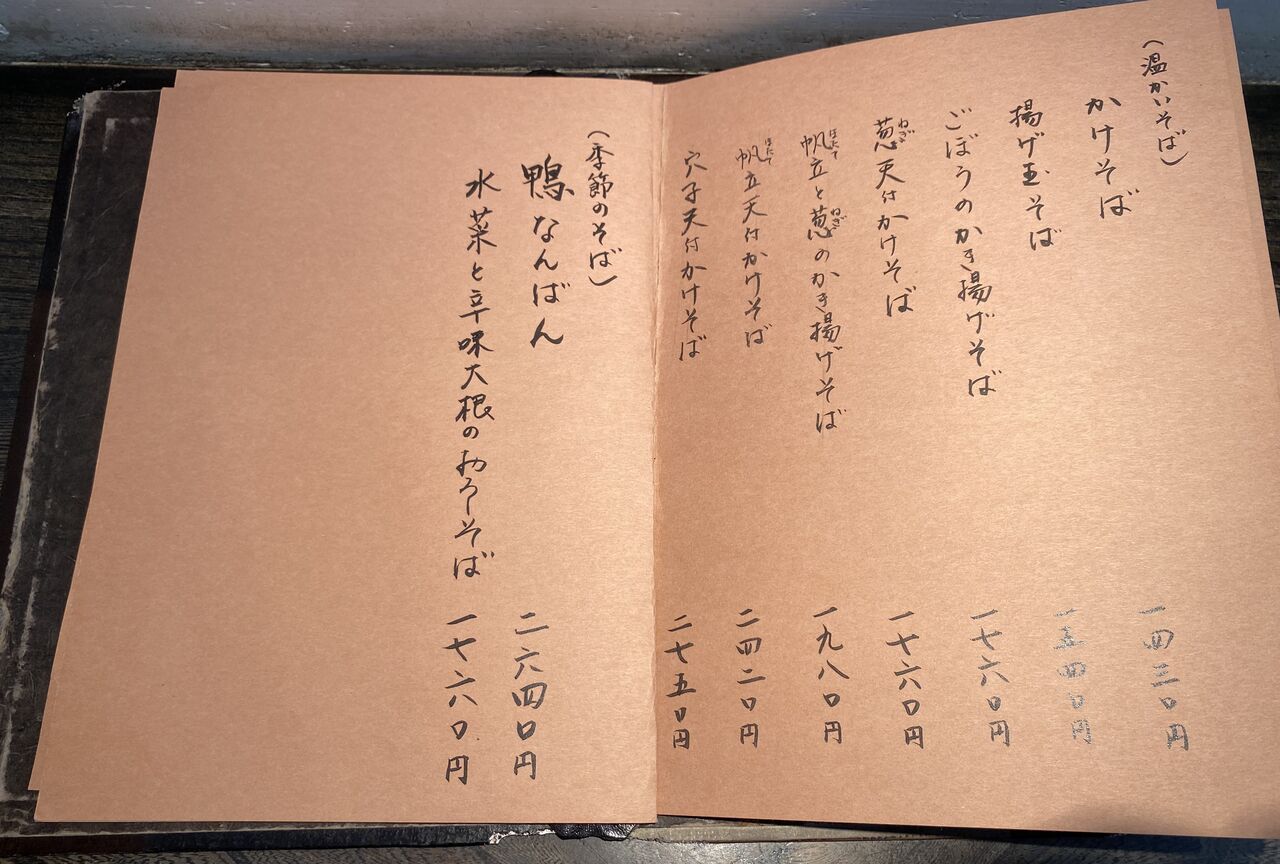 (温かいそば)
かけそば 一四三〇円
揚げ玉そば 一五四〇円
ごぼうのかき揚げそば 一七六〇円
葱天付かけそば 一七六〇円
ねぎ
帆立と葱のかき揚げそば 一九八〇円
ほたて ねぎ
帆立天付かけそば 二四二〇円
ほたて
穴子天付かけそば 二七五〇円
(季節のそば)
鴨なんばん 二六四〇円
水菜と辛味大根のおろしそば 一七六〇円